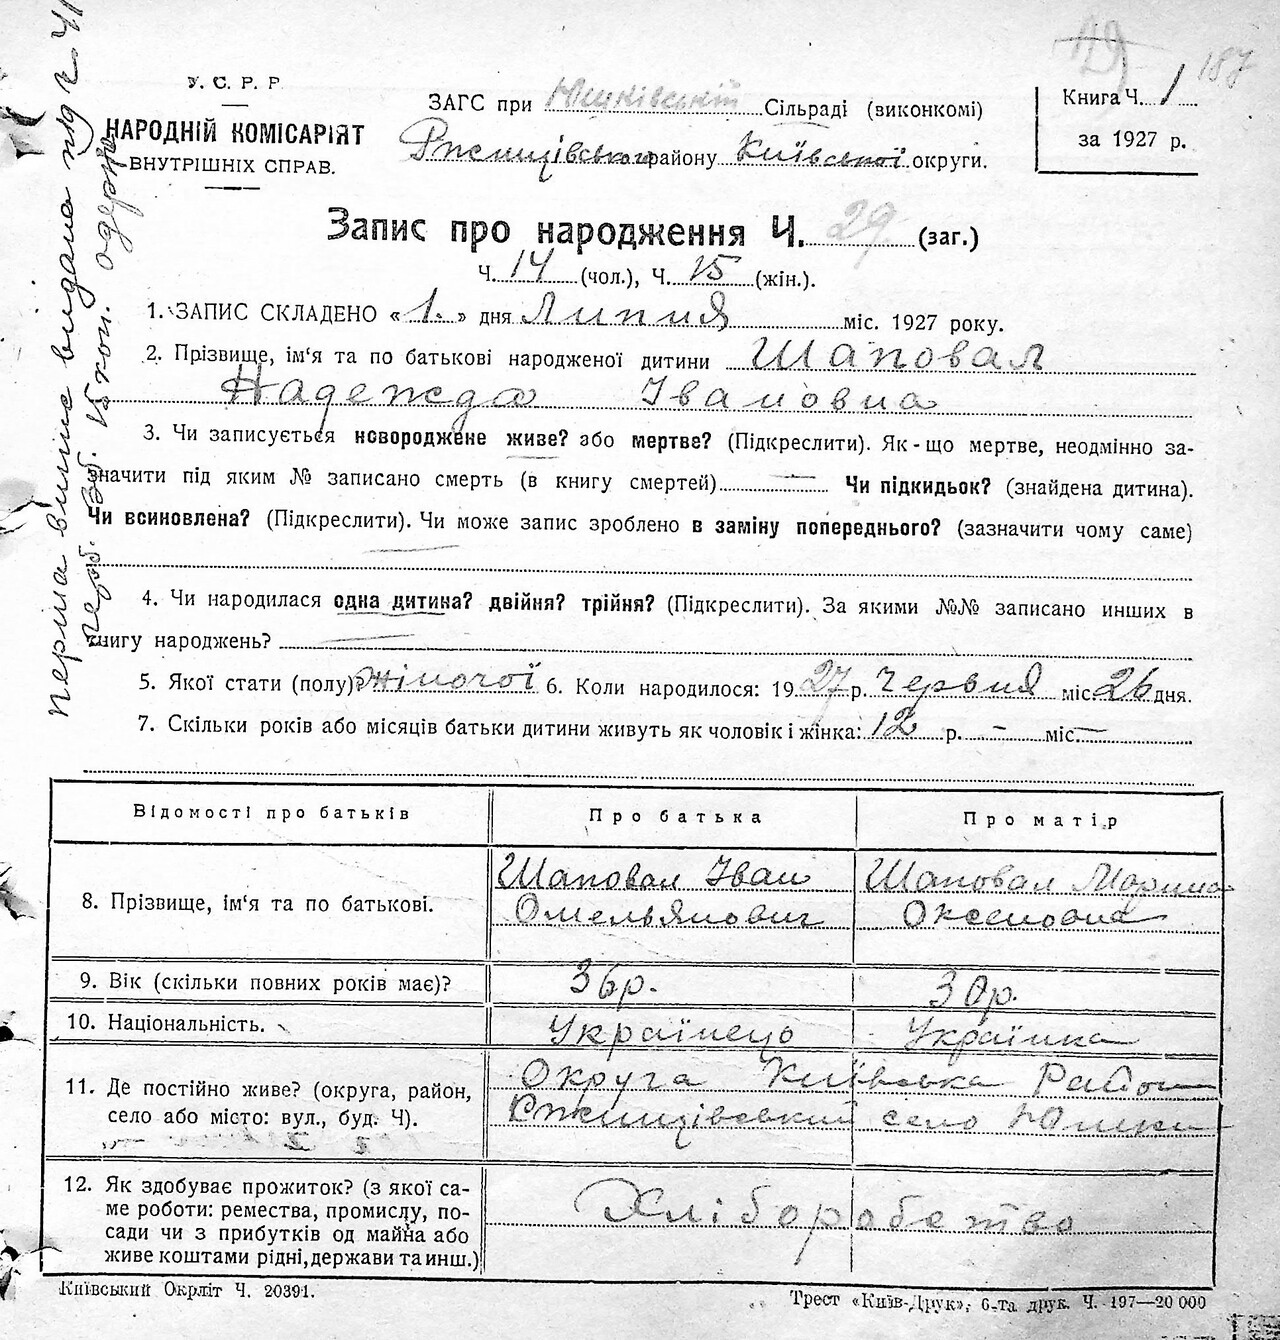 119
187
У. С. Р. Р.
НАРОДНІЙ КОМІСАРІЯТ
ВНУТРІШНІХ СПРАВ.
ЗАГС при Юшківській Сільраді (виконкомі)
Ржищівського району Київської округи.
Книга Ч. 1
за 1927 р.
Запис про народження Ч. 29 (заг.)
Ч. 14 (чол.), Ч. 15 (жін.).
1. ЗАПИС СКЛАДЕНО «1.» дня Липня міс. 1927 року.
2. Прізвище, ім‘я та по батькові народженої дитини Шаповал
Надежда Івановна
3. Чи записується новороджене живе? або мертве? (Підкреслити). Як-що мертве, неодмінно за-
значити під яким № записано смерть (в книгу смертей) — Чи підкидьок? (знайдена дитина).
Чи всиновлена? (Підкреслити). Чи може запис зроблено в заміну попереднього? (зазначити чому саме)
4. Чи народилася одна дитина? двійня? трійня? (Підкреслити). За якими №№ записано инших в
книгу народжень?
5. Якої стати (полу) жіночої 6. Коли народилося: 1927 р. Червня міс 26 дня.
7. Скільки років або місяців батьки дитини живуть як чоловік і жінка: 12 р. – міс. –
Відомості про батьків
Про батька
Про матір
8. Прізвище, ім‘я та по батькові.
Шаповал Іван
Омельянович
Шаповал Марина
Оксеновна
9. Вік (скільки повних років має)?
36р.
30р.
10. Національність.
Українець
Українка
11. Де постійно живе? (округа, район,
село або місто: вул., буд. Ч).
Округа Київська Район
Ржищівський село Юшки
12. Як здобуває прожиток? (з якої са-
ме роботи: ремества, промислу, по-
сади чи з прибутків од майна або
живе коштами рідні, держави та инш.)
Хліборобство
Київський Окрліт Ч. 20391.
Трест «Київ-Друк», 6-та друк. Ч. 197—20 000
перша випис видана під ч.
15 коп. одерж